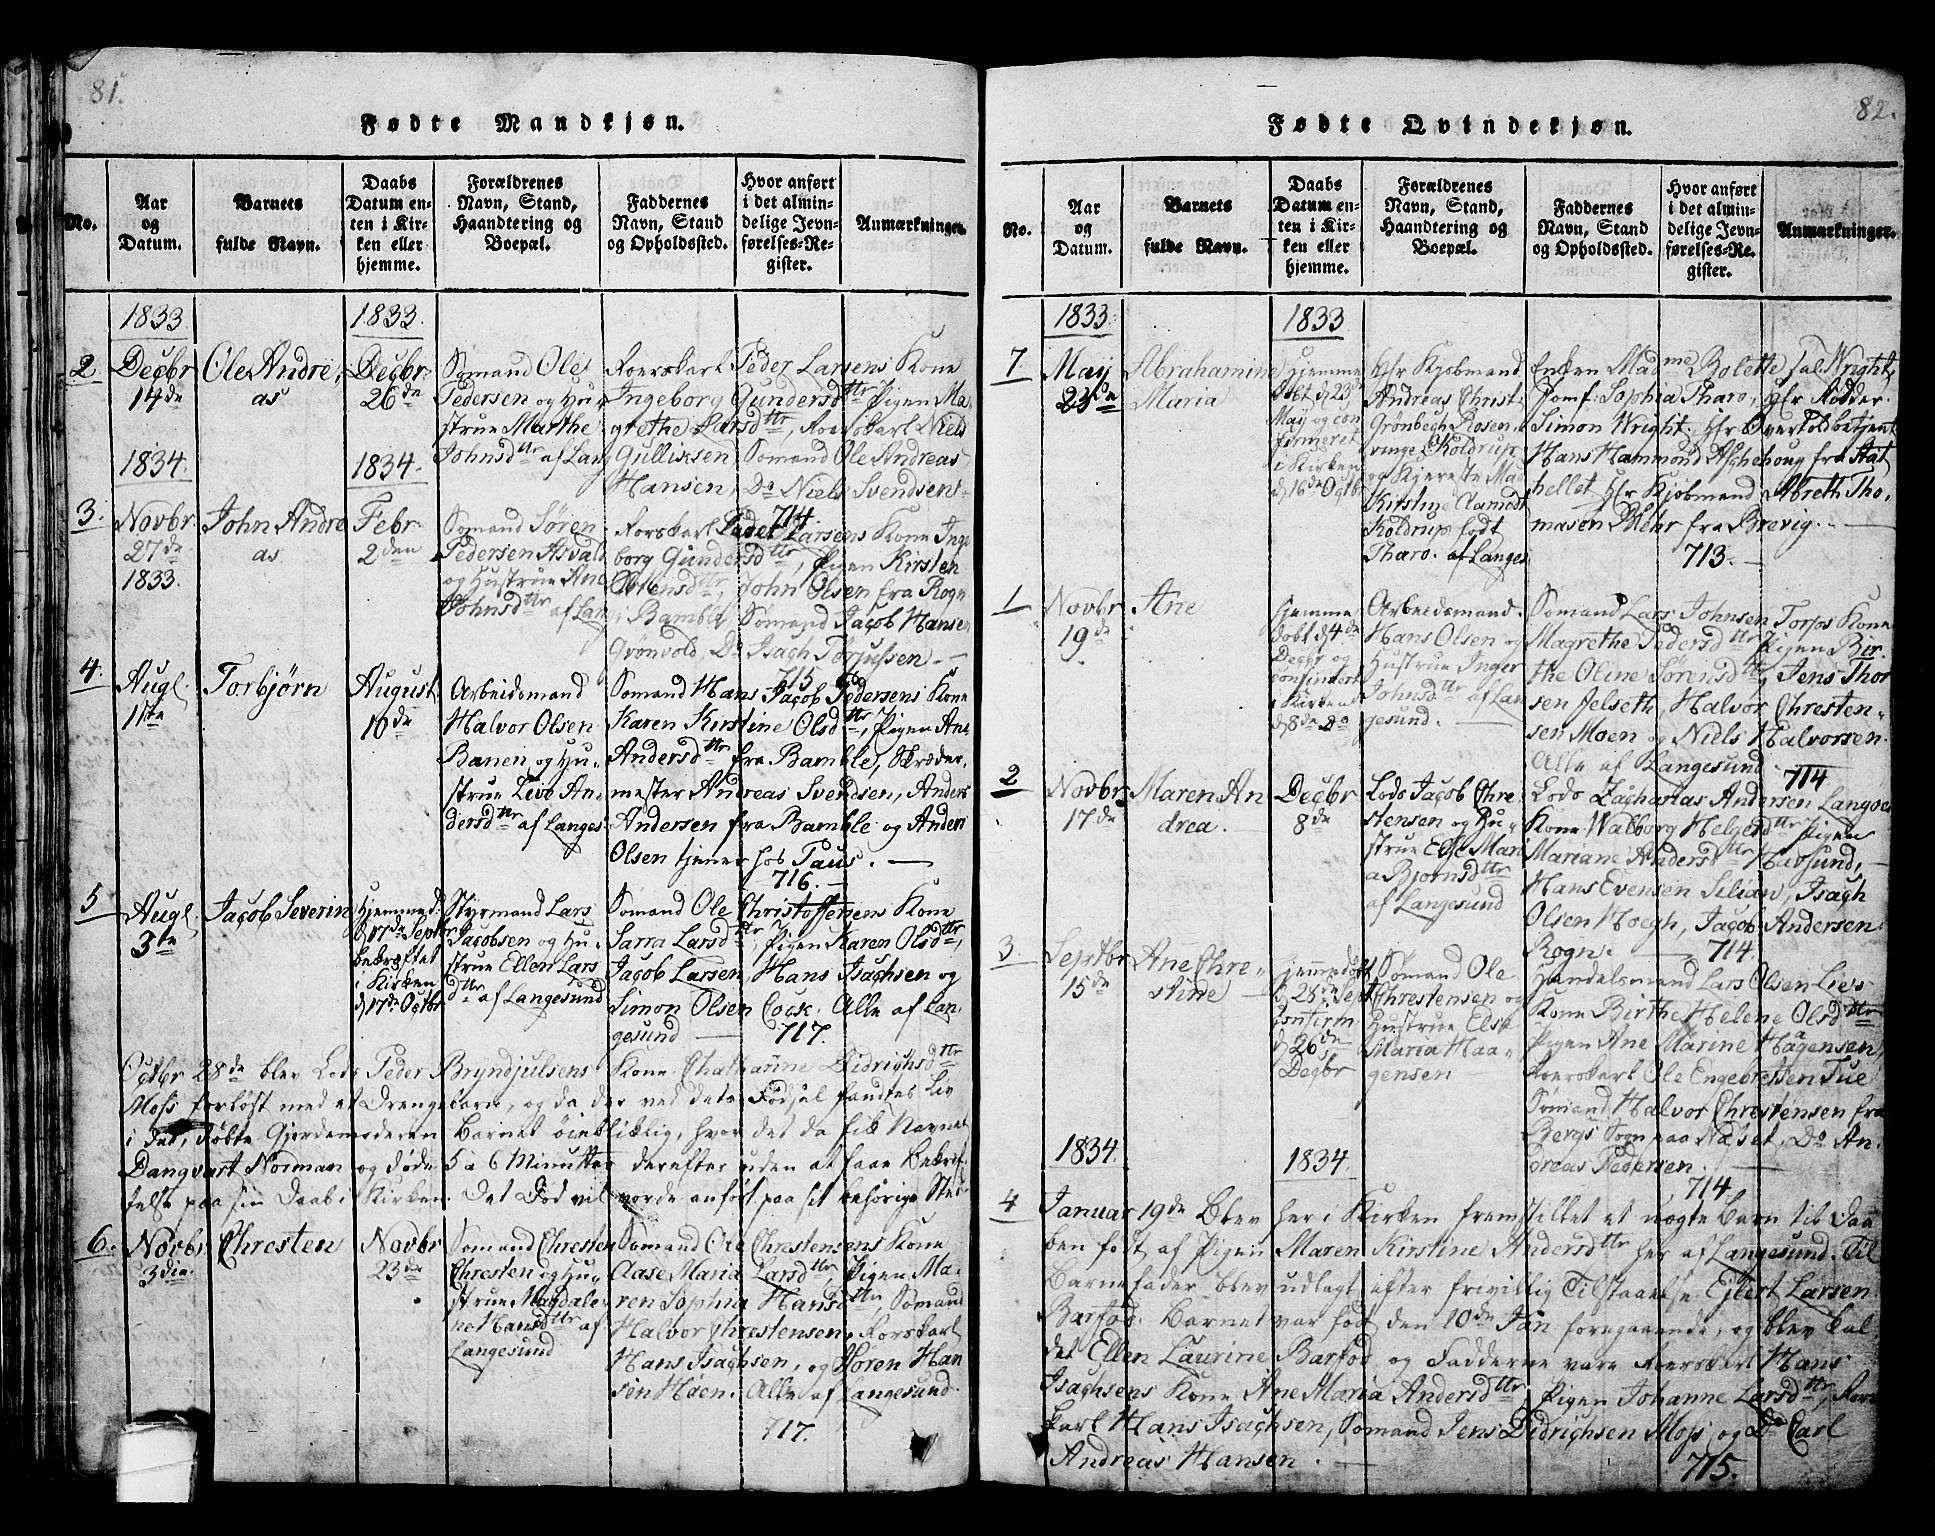 81.
Fødte Mandkjøn.
No.
Aar og Datum.
Barnets fulde Navn.
Daabs Datum enten i Kirken eller hjemme.
Forældrenes Navn, Stand, Haandtering og Boepæl.
Faddernes Navn, Stand og Opholdssted.
Hvor anført i det almindelige Jevnførelses-Register.
Anmærkninger.
1833
1833.
2
Decbr
14de
Ole Andre,
as
Decbr.
26de
Sømand Ole
Pedersen og Hu-
strue Marthe
Johnsdttr af Lang
Roerskarl Peder Larsens Kone
Ingeborg Gundersdttr Pigen Ma-
grethe Larsdttr, Roerskarl Niels
Gulliksen, Sømand Ole Andreas
Hansen, Do Niels Svendsen
714
1834.
1834.
3.
Novbr
27de
1833.
John Andre
as
Febr
2den
Sømand Søren
Pedersen Asvald
og Hustrue Ane
Johnsdttr af Lang
Roerskarl Peder Larsens Kone Inge
borg Gundersdttr, Pigen Kirsten
Ottensdttr, John Olsen fra Rogn
i Bamble Sømand Jacob Hansen
Grönvold, Do Isach Torjussen.
715
4.
Augl.
11te
Torbjørn
August
10de
Arbeidsmand
Halvor Olsen
Banen og Hu-
strue Leve An-
dersdttr af Langes.
Sømand Hans Jacob Pedersens Kone
Karen Kirstine Olsdttr, Pigen Ane
Andersdttr fra Bamble, Skræder-
mester Andreas Svendsen, Anders
Andersen fra Bamble og Anders
Olsen tjener hos Taus.
716.
5
Augl.
3te
Jacob Severin
Hjemmed.
d 17de Septbr
bekræftet
i Kirken
d 17de Octbr
Styrmand Lars
Jacobsen og Hu-
strue Ellen Lars
dttr af Langesund
Sømand Ole Christoffersens Kone
Sarra Larsdttr, Pigen Karen Olsdttr,
Jacob Larsen, Hans Isachsen og
Simon Olsen Cock. Alle af Lan-
gesund
717.
Octbr 28de blev Lods Peder Bryndjulsens Kone Chatharine Didrichsdttr
Moss forløst med et Drengebarn, og da der ved dets Fødsel fandtes Liv
i det, døbte Gjordemoderen Barnet öieblikklig, hvor det da fik Navnet
Dangvart Norman og døde 5 a 6 Minutter derefter uden at faae Bekræf-
telse paa sin Daab i Kirken. Det Død vil vorde anført paa sit behörige Sted.
6.
Novbr
3dia
Chresten
Novbr
23de
Sømand Chresten
Chresten og Hu-
strue Magdale-
ne Hansdttr af
Langesund
Sømand Ole Chrestensens Kone
Aase Maria Larsdttr, Pigen Ma-
ren Sophia Hansdttr, Sømand
Halvor Chrestensen, Rorskarl
Hans Isachsen, og Søren Han-
sen Høen. Alle af Langesund.
717.
82.
Fødte Qvindekjøn.
No.
Aar og Datum.
Barnets fulde Navn.
Daabs Datum enten i Kirken eller hjemme.
Forældrenes Navn, Stand, Haandtering og Boepæl.
Faddernes Navn, Stand og Opholdssted.
Hvor anført i det almindelige Jevnførelses-Register.
Anmærkninger.
1833.
1833
7
May
23de
Abrahamine
Maria
Hjemme
döbt d 23de
May og con
formeret
i Kirken
d 16de Octbr
Hr Kjøbmand
Andreas Christ.
Grönbech Rosen-
vinge Koldrup
og Kjereste Mad
Kirstine Aamodt
Koldrup født
Tharo. af Langes
Enken Madme Bolette sal Wright,
Jomf. Sophia Tharo, Hr Redder
Simon Wright, Hr Overtoldbetjent
Hans Hammond Aschehoug fra Stat
hellet Hr Kjøbmand Abreth Tho-
mason Møhr fra Brevig.
713.
1
Novbr
19de
Ane
Hjemme
døbt d 4de
Decbr og
confirmert
i Kirken
d 8de Do
Arbeidsmand.
Hans Olsen og
Hustrue Inger
Johnsdttr af Lan
gesund.
Sømand Lars Johnsen Torps Kone
Magrethe Pedersdttr Pigen Bir-
the Oline Sørensdttr, Jens Thor
sen Jelseth, Halvor Chresten-
sen Moen og Niels Halvorsen
Alle af Langesund
714
2
Novbr
17de
Maren An
drea.
Decbr
8de
Lods Jacob Chre
stensen og Hu-
strue Else Mari
a Bjornsdttr
af Langesund
Lods Zacharias Andersen Langøes
Kone Walborg Helgesdttr Pigen
Mariane Andersdttr Havsund,
Hans Evensen Silian, Isach
Olsen Hoegh, Jacob Andersen
Rogn.
714
3
Septbr
15de
Ane Chre-
stine
Hjemmedöbt
d 28de Sept
Confirm
d 26de
Decbr
Sømand Ole
Chrestensen og
Hustrue Else
Maria Haa-
gensen
Handelsmand Lars Olsen Lies
Kone Birthe Helene Olsdttr
Pigen Ane Marine Hågensen,
Roerskarl Ole Engebretsen Tue
Sømand Halvor Chrestensen fra
Bergs Sogn paa Næset, Do An-
dreas Pedersen.
714.
1834.
1834.
4
Januar 19de Blev her i Kirken fremstillet et uægte Barn til Daa
ben født af Pigen Maren Kirstine Andersdttr her af Langesund. Til
Barnefader blev udlagt efter frivillig Tilstaaelse Ejlert Larsen
Barfod. Barnet var fød den 10de Jan foregaaende, og blev kal
det Ellen Laurine Barfod og Fadderne vare Roerskarl Hans
Isachsens Kone Ane Maria Andersdttr Pigen Johanne Larsdttr, Rors
karl Hans Isachsen, Sømand Jens Didrichsen Moss, og Do Carl
Andreas Hansen.
715.